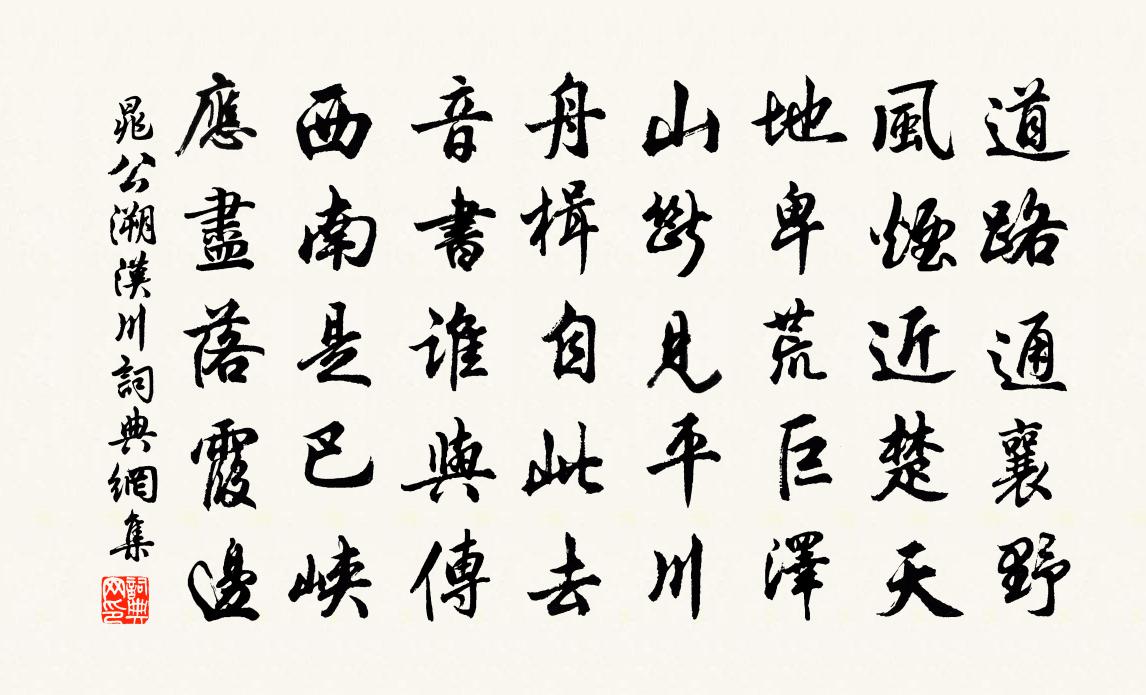 道路通襄野
風煙近楚天
地卑荒巨澤
山斷見平川
舟楫自此去
音書誰與傳
西南是巴峽
應盡落霞邊
晁公溯漢川詞典網集
詞典網印